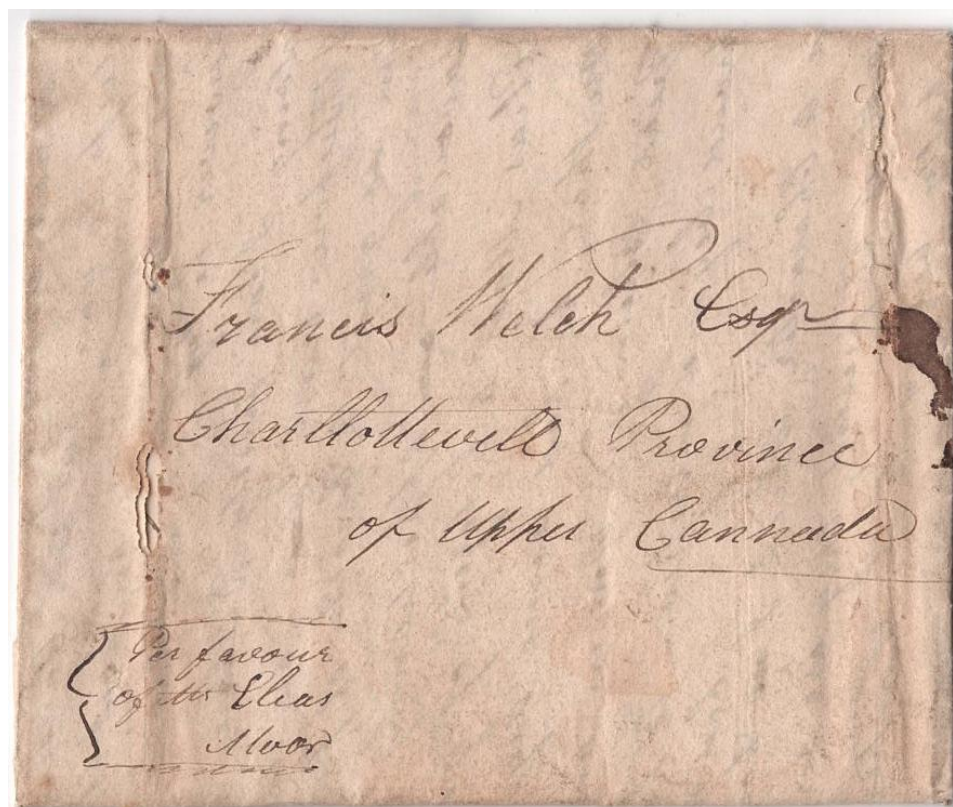 Francis Welch Esqr
Charllottevill Province
of Upper Cannada
Per favour
of Mr Elias
Moor